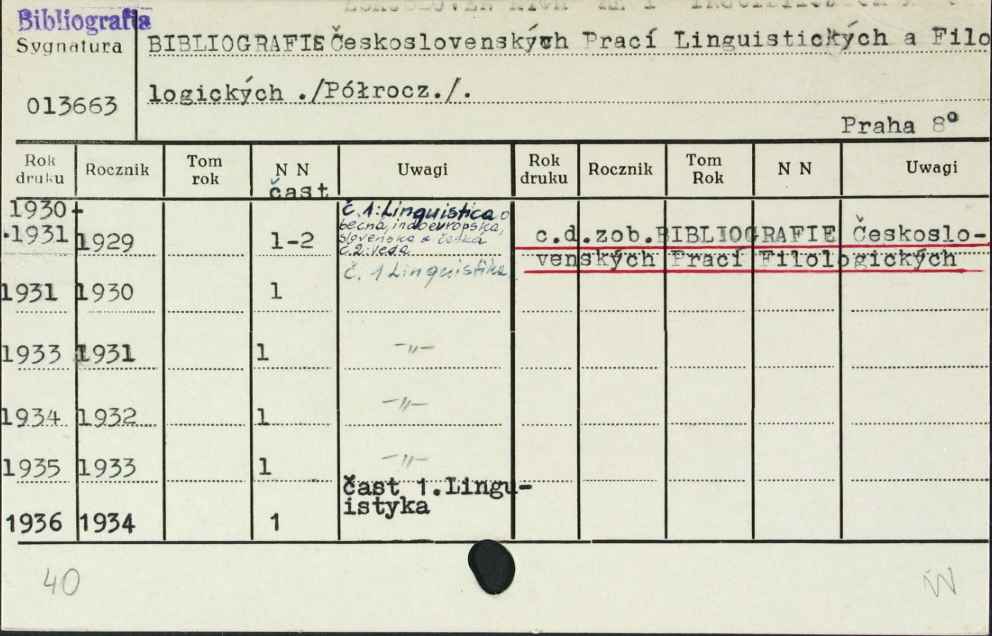 Bibliografia
Sygnatura
BIBLIOGRAFIE Československých Prací Linguistických a Filo
013663
logických ./Półrocz./.
Praha 8º
Rok druku Rocznik Tom rok N N Uwagi Rok druku Rocznik Tom Rok N N Uwagi
část
1930-
1931 1929 1-2 č. 1: Linguistica o
becná, indoevropská,
slovenská a česká
č. 2: věda
c.d.zob.BIBLIOGRAFIE Českoslo-
venských Prací Filologických
1931 1930 1 č. 1 Linguistika
1933 1931 1 -"-
1934 1932 1 -"-
1935 1933 1 -"-
1936 1934 1 část 1.Lingu-
istyka
40